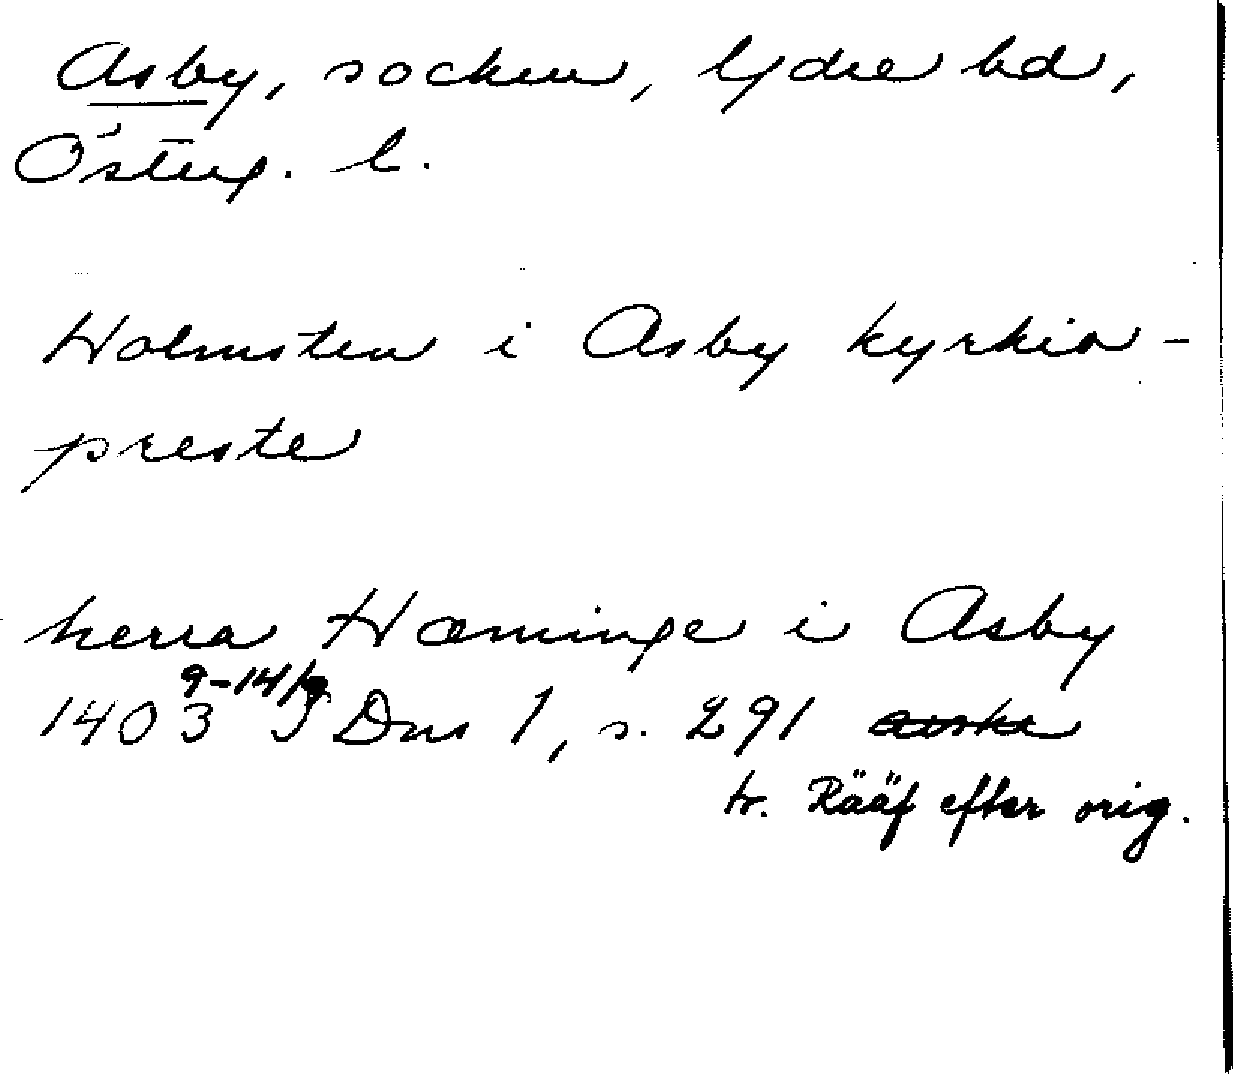 Asby, socken, Ydre hd,
Österg. l.
Holmsten i Asby kyrkio-
preste
herra Hæminge i Asby
9-14/9
1403 SDns 1, s. 291 avskr
tr. Rääf efter orig.